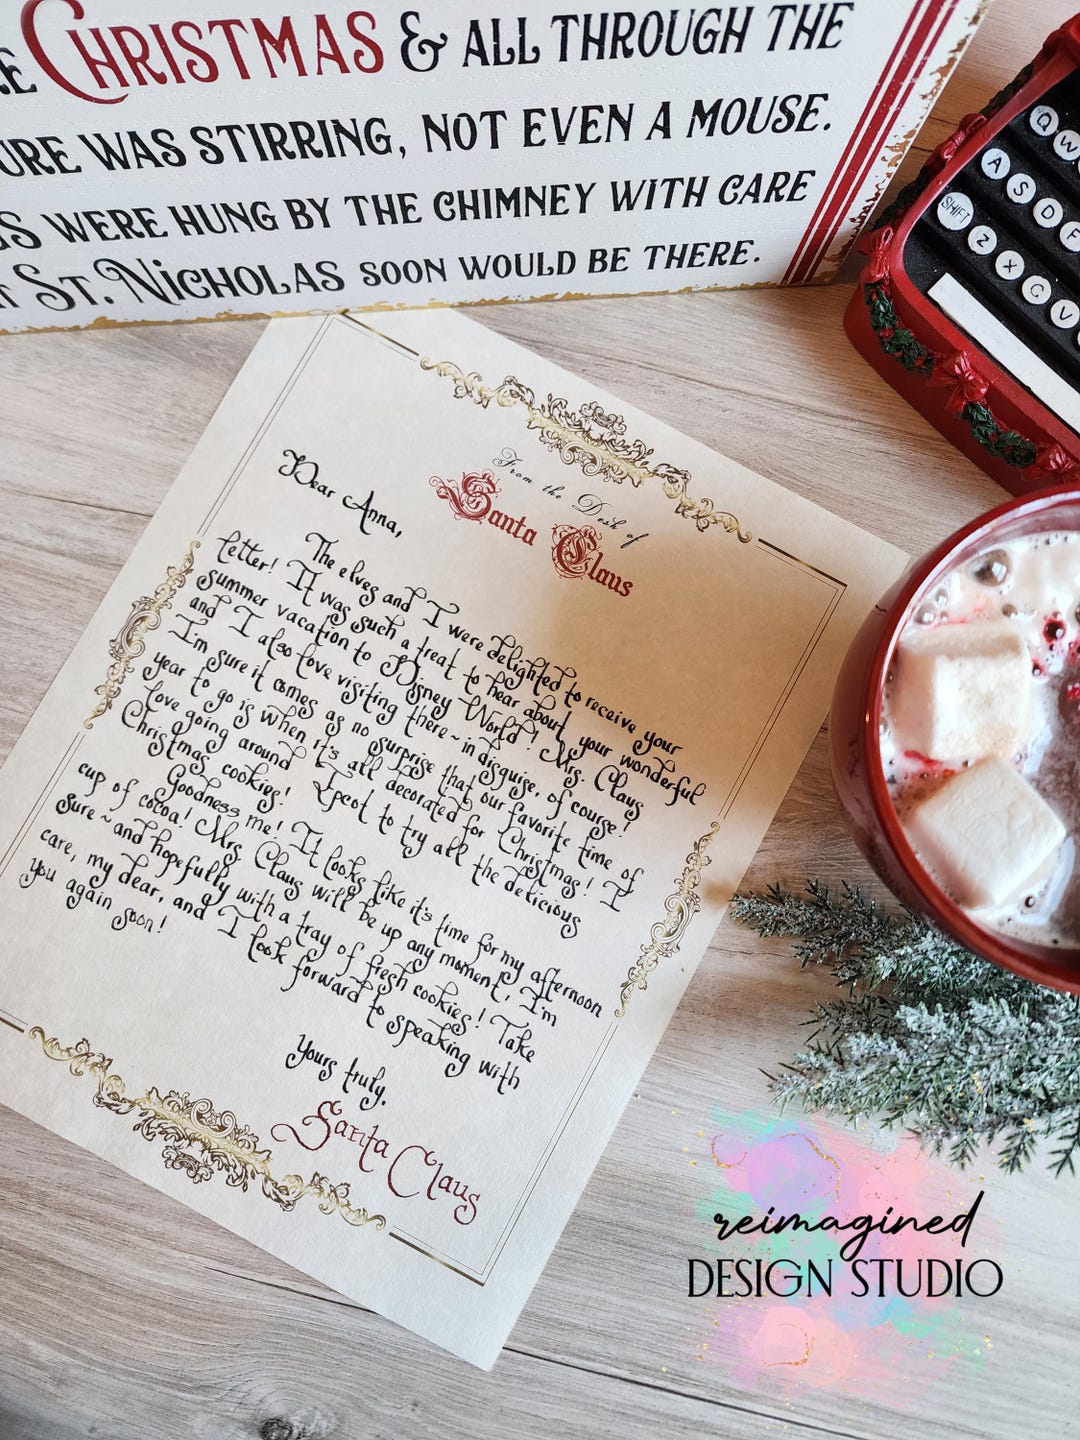 CHRISTMAS & ALL THROUGH THE
URE WAS STIRRING, NOT EVEN A MOUSE.
S WERE HUNG BY THE CHIMNEY WITH CARE
T ST. NICHOLAS SOON WOULD BE THERE.
Q W
A S D F
SHIFT Z X C V
From the Desk of
Santa Claus
Dear Anna,
The elves and I were delighted to receive your
letter! It was such a treat to hear about your wonderful
summer vacation to Disney World! Mrs. Claus
and I also love visiting there~in disguise, of course!
I'm sure it comes as no surprise that our favorite time of
year to go is when it's all decorated for Christmas! I
love going around Epcot to try all the delicious
Christmas cookies!
Goodness me! It looks like it's time for my afternoon
cup of cocoa! Mrs. Claus will be up any moment, I'm
sure~and hopefully with a tray of fresh cookies! Take
care, my dear, and I look forward to speaking with
you again soon!
Yours truly,
Santa Claus
reimagined
DESIGN STUDIO